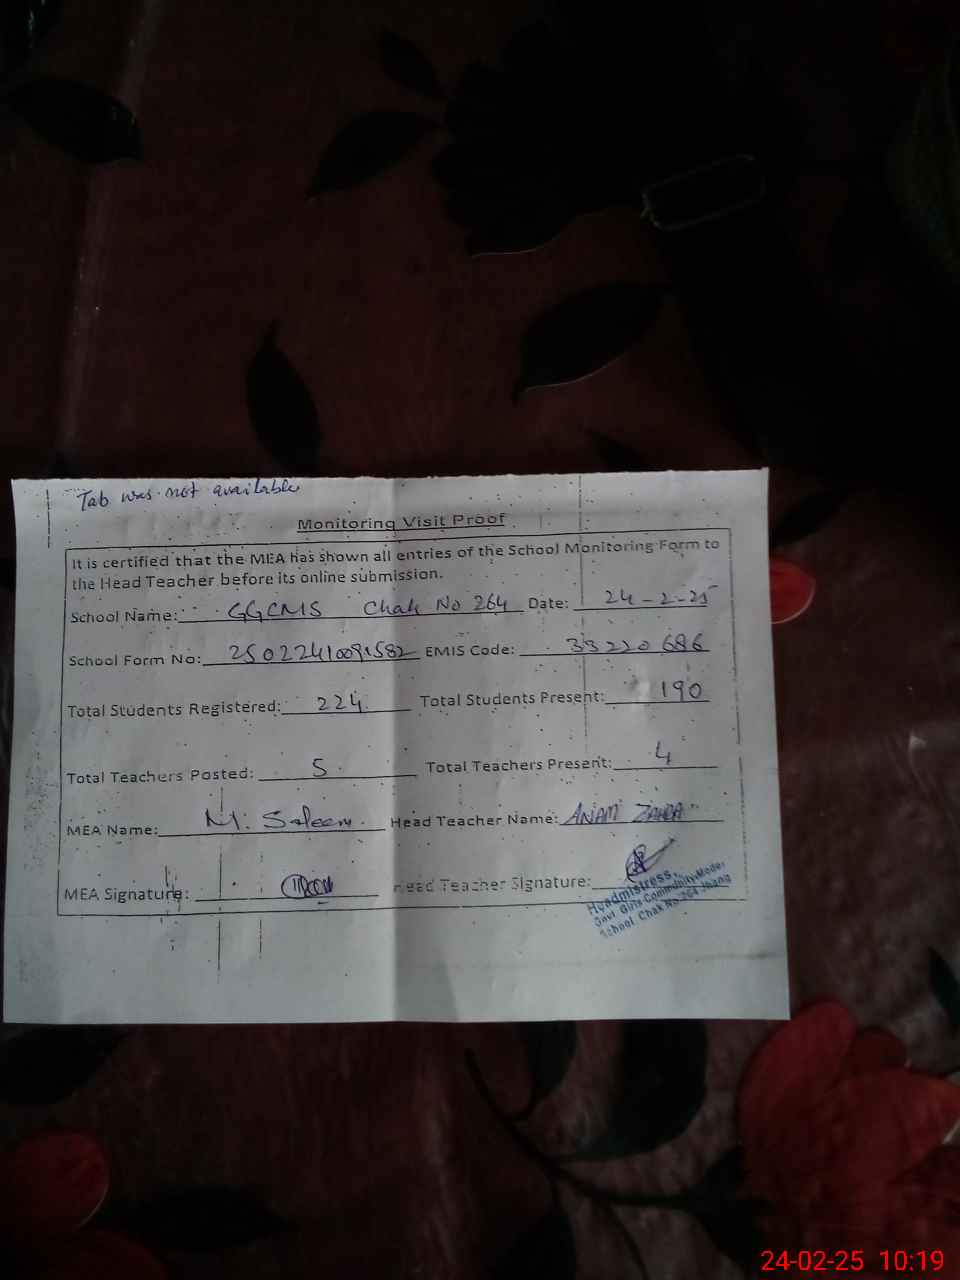 Tab was not available
Monitoring Visit Proof
It is certified that the MEA has shown all entries of the School Monitoring Form to
the Head Teacher before its online submission.
School Name: GGCMS Chak No 264 Date: 24-2-25
School Form No: 25022410091582 EMIS Code: 33220686
Total Students Registered: 224 Total Students Present: 190
Total Teachers Posted: 5 Total Teachers Present: 4
MEA Name: M. Saleem Head Teacher Name: ANAM ZAHRA
MEA Signature: Head Teacher Signature:
Headmistress
Govt. Girls Community Model
School Chak No.264 Jhang
24-02-25 10:19